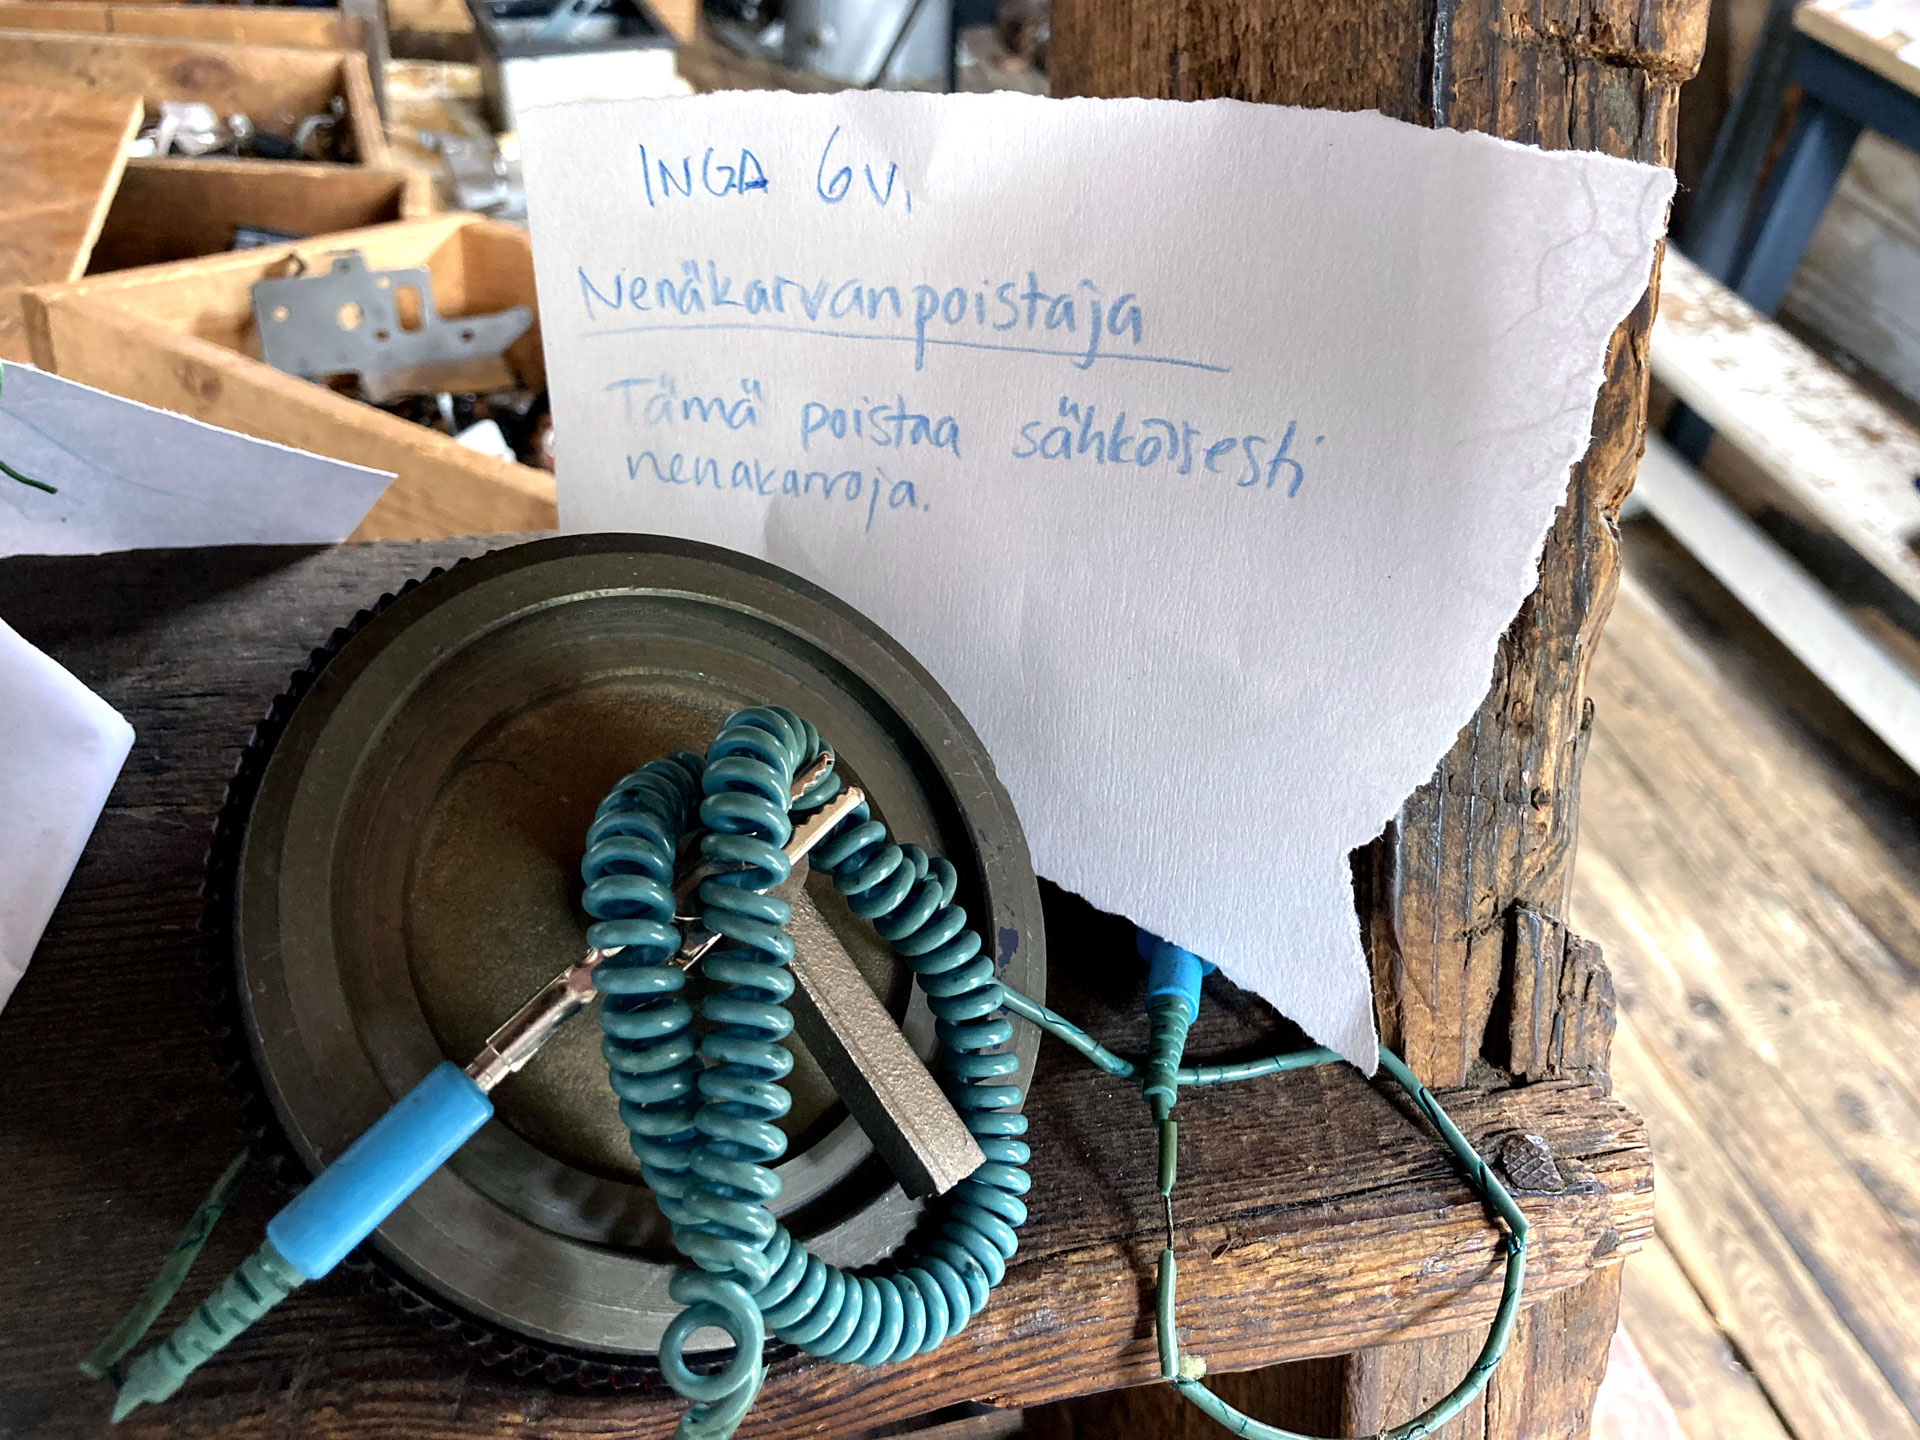 INGA 6v.
Nenäkarvanpoistaja
Tämä poistaa sähköisesti
nenäkarvoja.